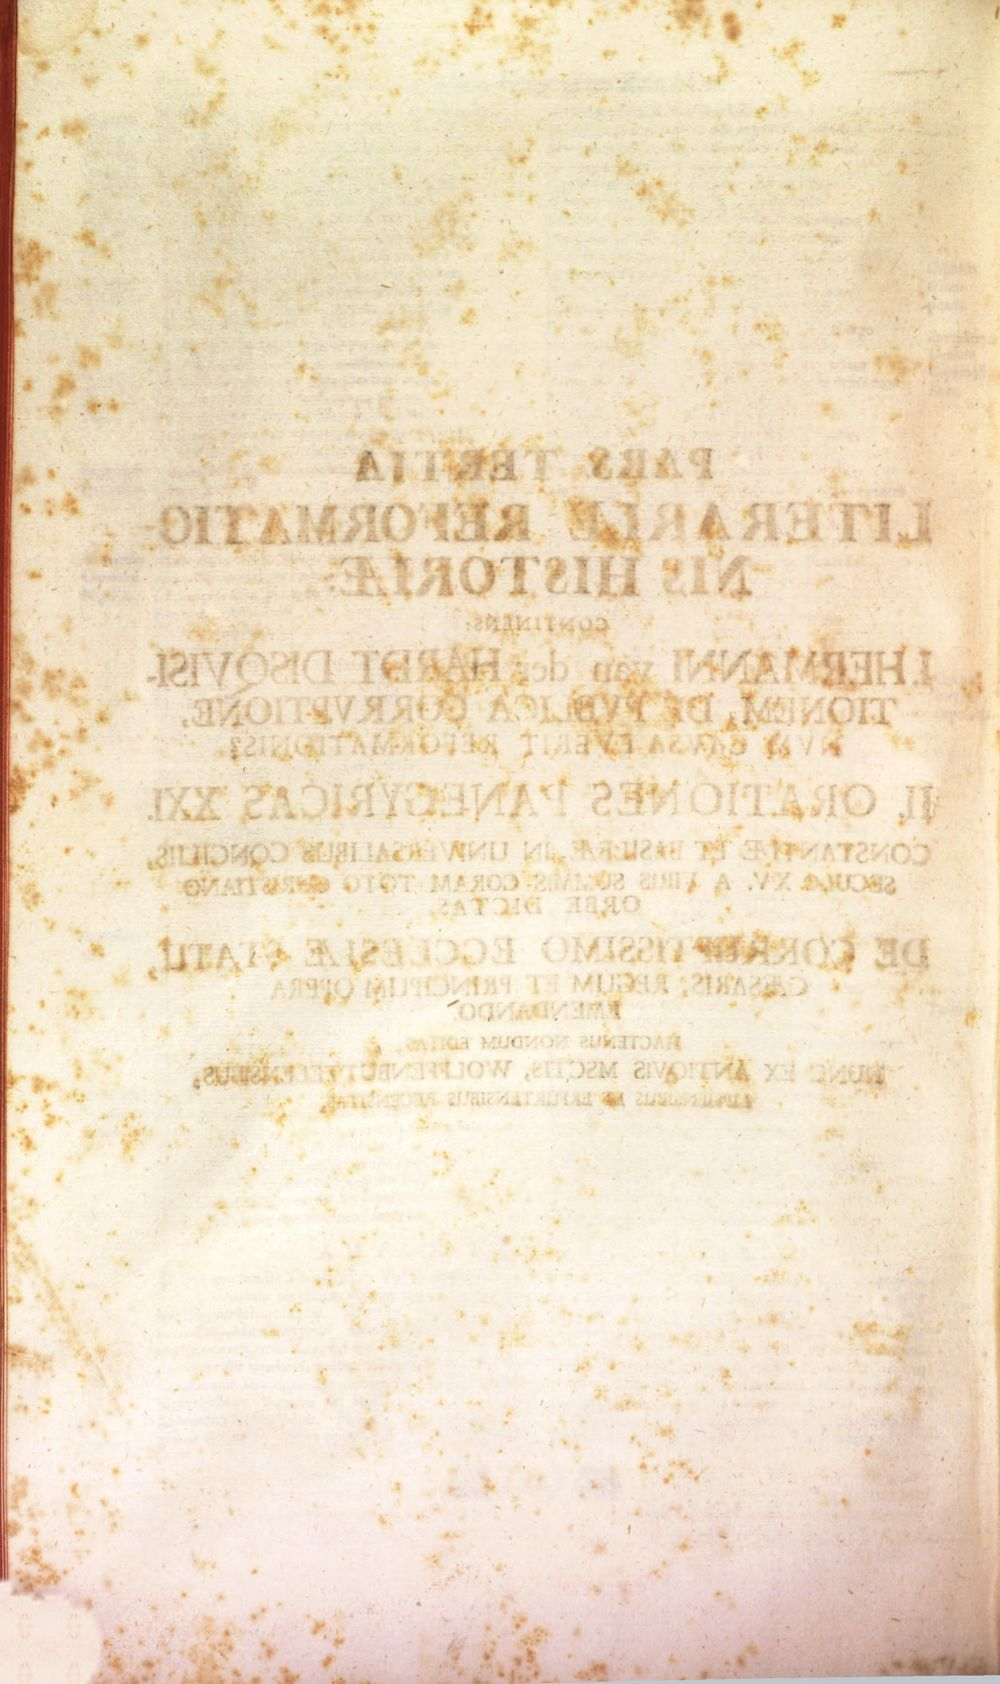 PARS TERTIA
LITERARIÆ REFORMATIO-
NIS HISTORIÆ,
CONTINENS:
I. HERMANNI van der HARDT DISQVISI-
TIONEM, DE PVBLICA CORRVPTIONE,
NVM CAVSA FVERIT REFORMATIONIS?
II. ORATIONES PANEGYRICAS XXI.
CONSTANTIÆ ET BASILEÆ, IN UNIVERSALIBUS CONCILIIS,
SECULI XV. A VIRIS SUMMIS CORAM TOTO CHRISTIANO
ORBE DICTAS,
DE CORRUPTISSIMO ECCLESIÆ STATU,
CÆSARIS, REGUM ET PRINCIPUM OPERA
EMENDANDO.
HACTENUS NONDUM EDITAS,
NUNC EX ANTIQVIS MSCTIS, WOLFFENBUTTELENSIBUS,
LIPSIENSIBUS ET ERFURTENSIBUS RECENSITAS.